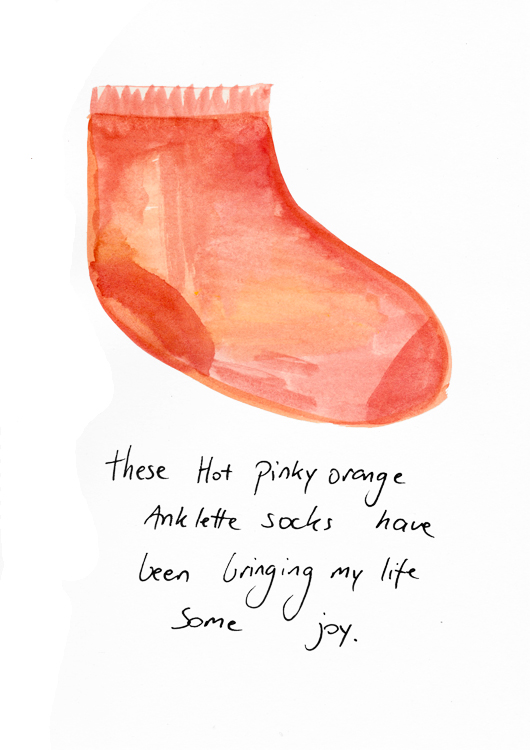 these Hot pinky orange
Anklette socks have
been bringing my life
some joy.